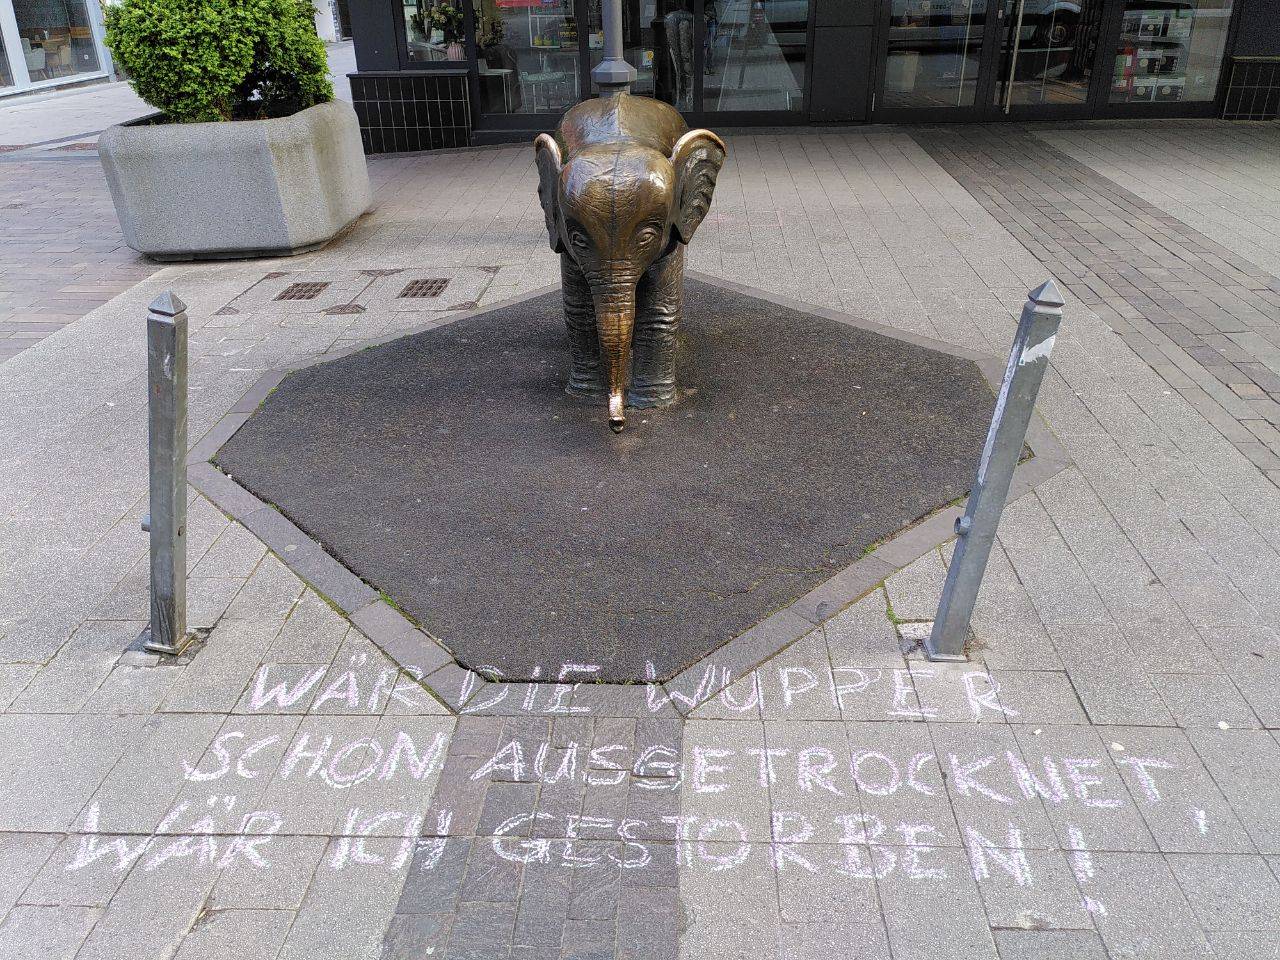 WÄR DIE WUPPER
SCHON AUSGETROCKNET,
WÄR ICH GESTORBEN!